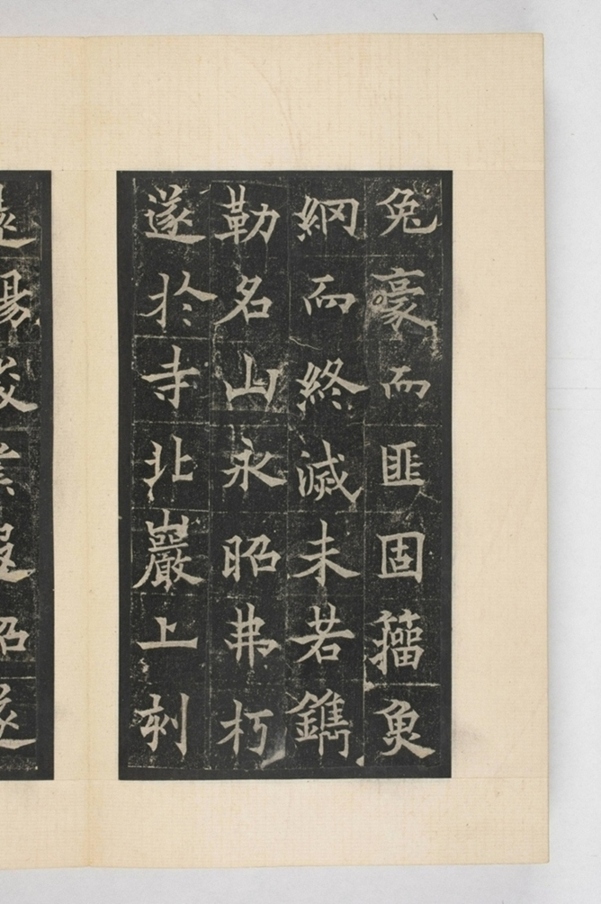 兔豪而匪固籕魚
網而終滅未若鐫
勒名山永昭弗朽
遂於寺北巖上刻